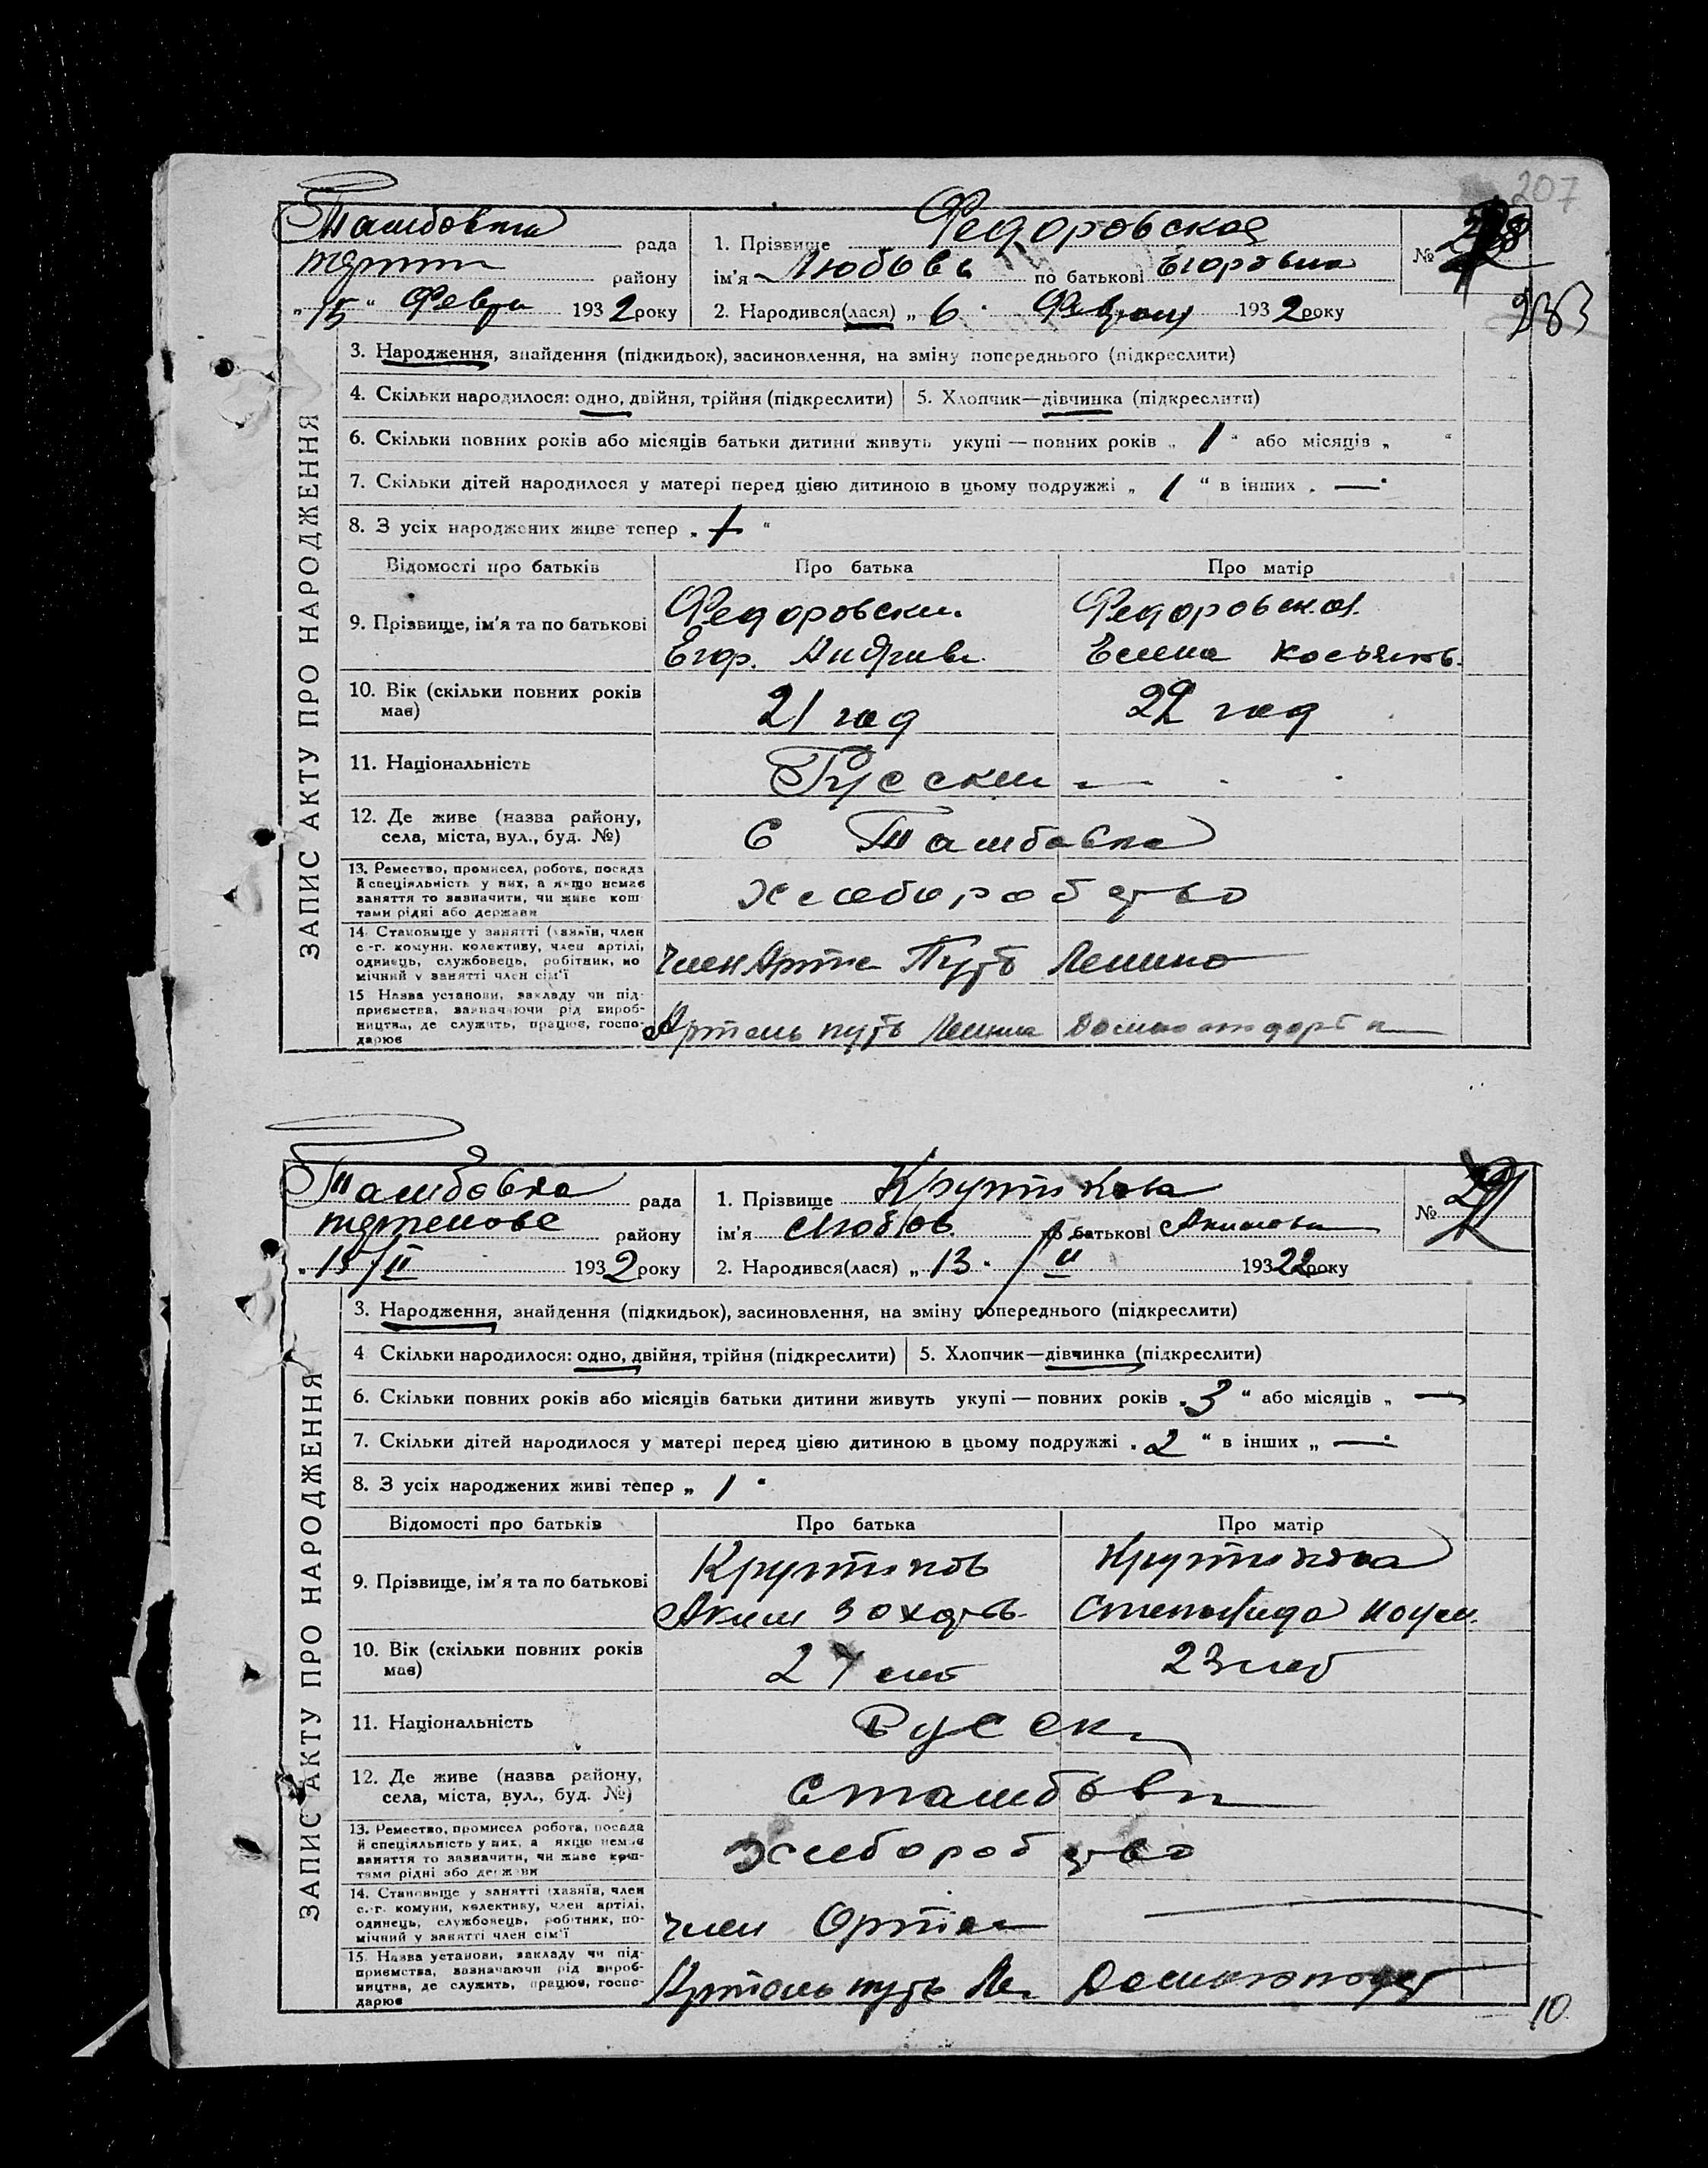 207
Ташбовка рада
району
„15“ Февр 1932 року
1. Прізвище Федоровская
ім'я Любовь по батькові Егоровна
2. Народився(лася) „6“ 1932 року
№
233
ЗАПИС АКТУ ПРО НАРОДЖЕННЯ
3. Народження, знайдення (підкидьок), засиновлення, на зміну попереднього (підкреслити)
4. Скільки народилося: одно, двійня, трійня (підкреслити) 5. Хлопчик—дівчинка (підкреслити)
6. Скільки повних років або місяців батьки дитини живуть укупі — повних років „1“ або місяців „ “
7. Скільки дітей народилося у матері перед цією дитиною в цьому подружжі „1“ в інших „—“
8. З усіх народжених живе тепер „1“
Відомості про батьків Про батька Про матір
9. Прізвище, ім'я та по батькові
Федоровски Федоровская
Егор.
10. Вік (скільки повних років має)
21 год 22 год
11. Національність Русски —
12. Де живе (назва району, села, міста, вул., буд. №)
С Ташбовка
13. Ремество, промисел, робота, посада
й спеціяльність у них, а якщо немає
заняття то зазначити, чи живе кош-
тами рідні або держави
хлеборобство
14. Становище у занятті (хазяїн, член
с.-г. комуни, колективу, член артілі,
одинець, службовець, робітник, по-
мічний у занятті член сім'ї
член Арте Путь Ленина
15. Назва установи, закладу чи під-
приємства, зазначаючи рід вироб-
ництва, де служить, працює, госпо-
дарює
Артель путь Ленина
Ташбовка рада
району
„15/II 1932 року
1. Прізвище Крутикова
ім'я Любов. по батькові Акимовн
2. Народився(лася) „13“/II 19322 року
№
ЗАПИС АКТУ ПРО НАРОДЖЕННЯ
3. Народження, знайдення (підкидьок), засиновлення, на зміну попереднього (підкреслити)
4 Скільки народилося: одно, двійня, трійня (підкреслити) 5. Хлопчик—дівчинка (підкреслити)
6. Скільки повних років або місяців батьки дитини живуть укупі — повних років „3“ або місяців „ —
7. Скільки дітей народилося у матері перед цією дитиною в цьому подружжі „2“ в інших „—“
8. З усіх народжених живі тепер „1“
Відомості про батьків Про батька Про матір
9. Прізвище, ім'я та по батькові
Крутиков Крутикова
Аким
10. Вік (скільки повних років має)
27 лет 23 лет
11. Національність Русск
12. Де живе (назва району, села, міста, вул., буд. №)
с ташбовк
13. Ремество, промисел робота, посада
й спеціяльність у них, а якщо немає
заняття то зазначити, чи живе кош-
тами рідні або держави
хлеборобство
14. Становище у занятті (хазяїн, член
с.-г. комуни, колективу, член артілі,
одинець, службовець, робітник, по-
мічний у занятті член сім'ї
член Ортел
15. Назва установи, закладу чи під-
приємства, зазначаючи рід вироб-
ництва, де служить, працює, госпо-
дарює
Артель путь Ле.
10